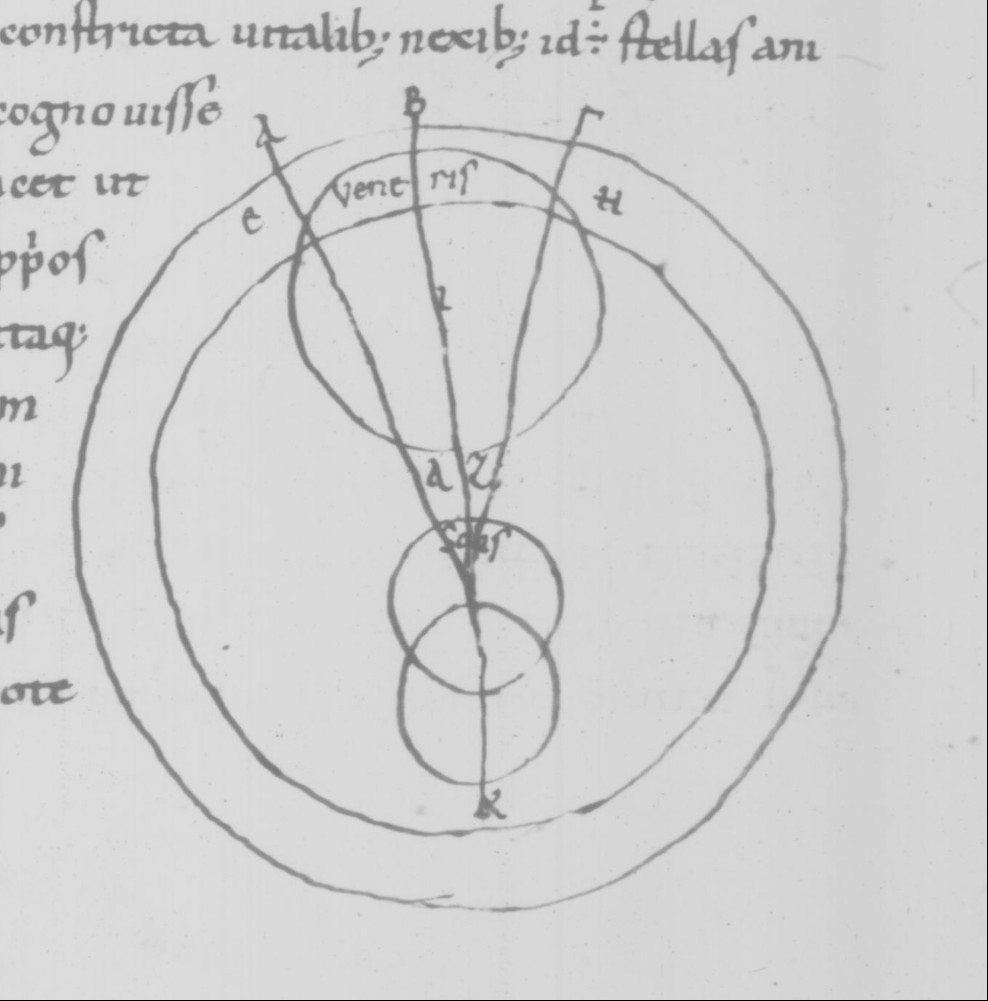 constricta uitalib; nexib; id÷ stellas ani
cognouisse
acet ut
ppos
ttaq;
m
ni
as
ote
A B Γ
e Vene ris H
I
A Z
Solis
K